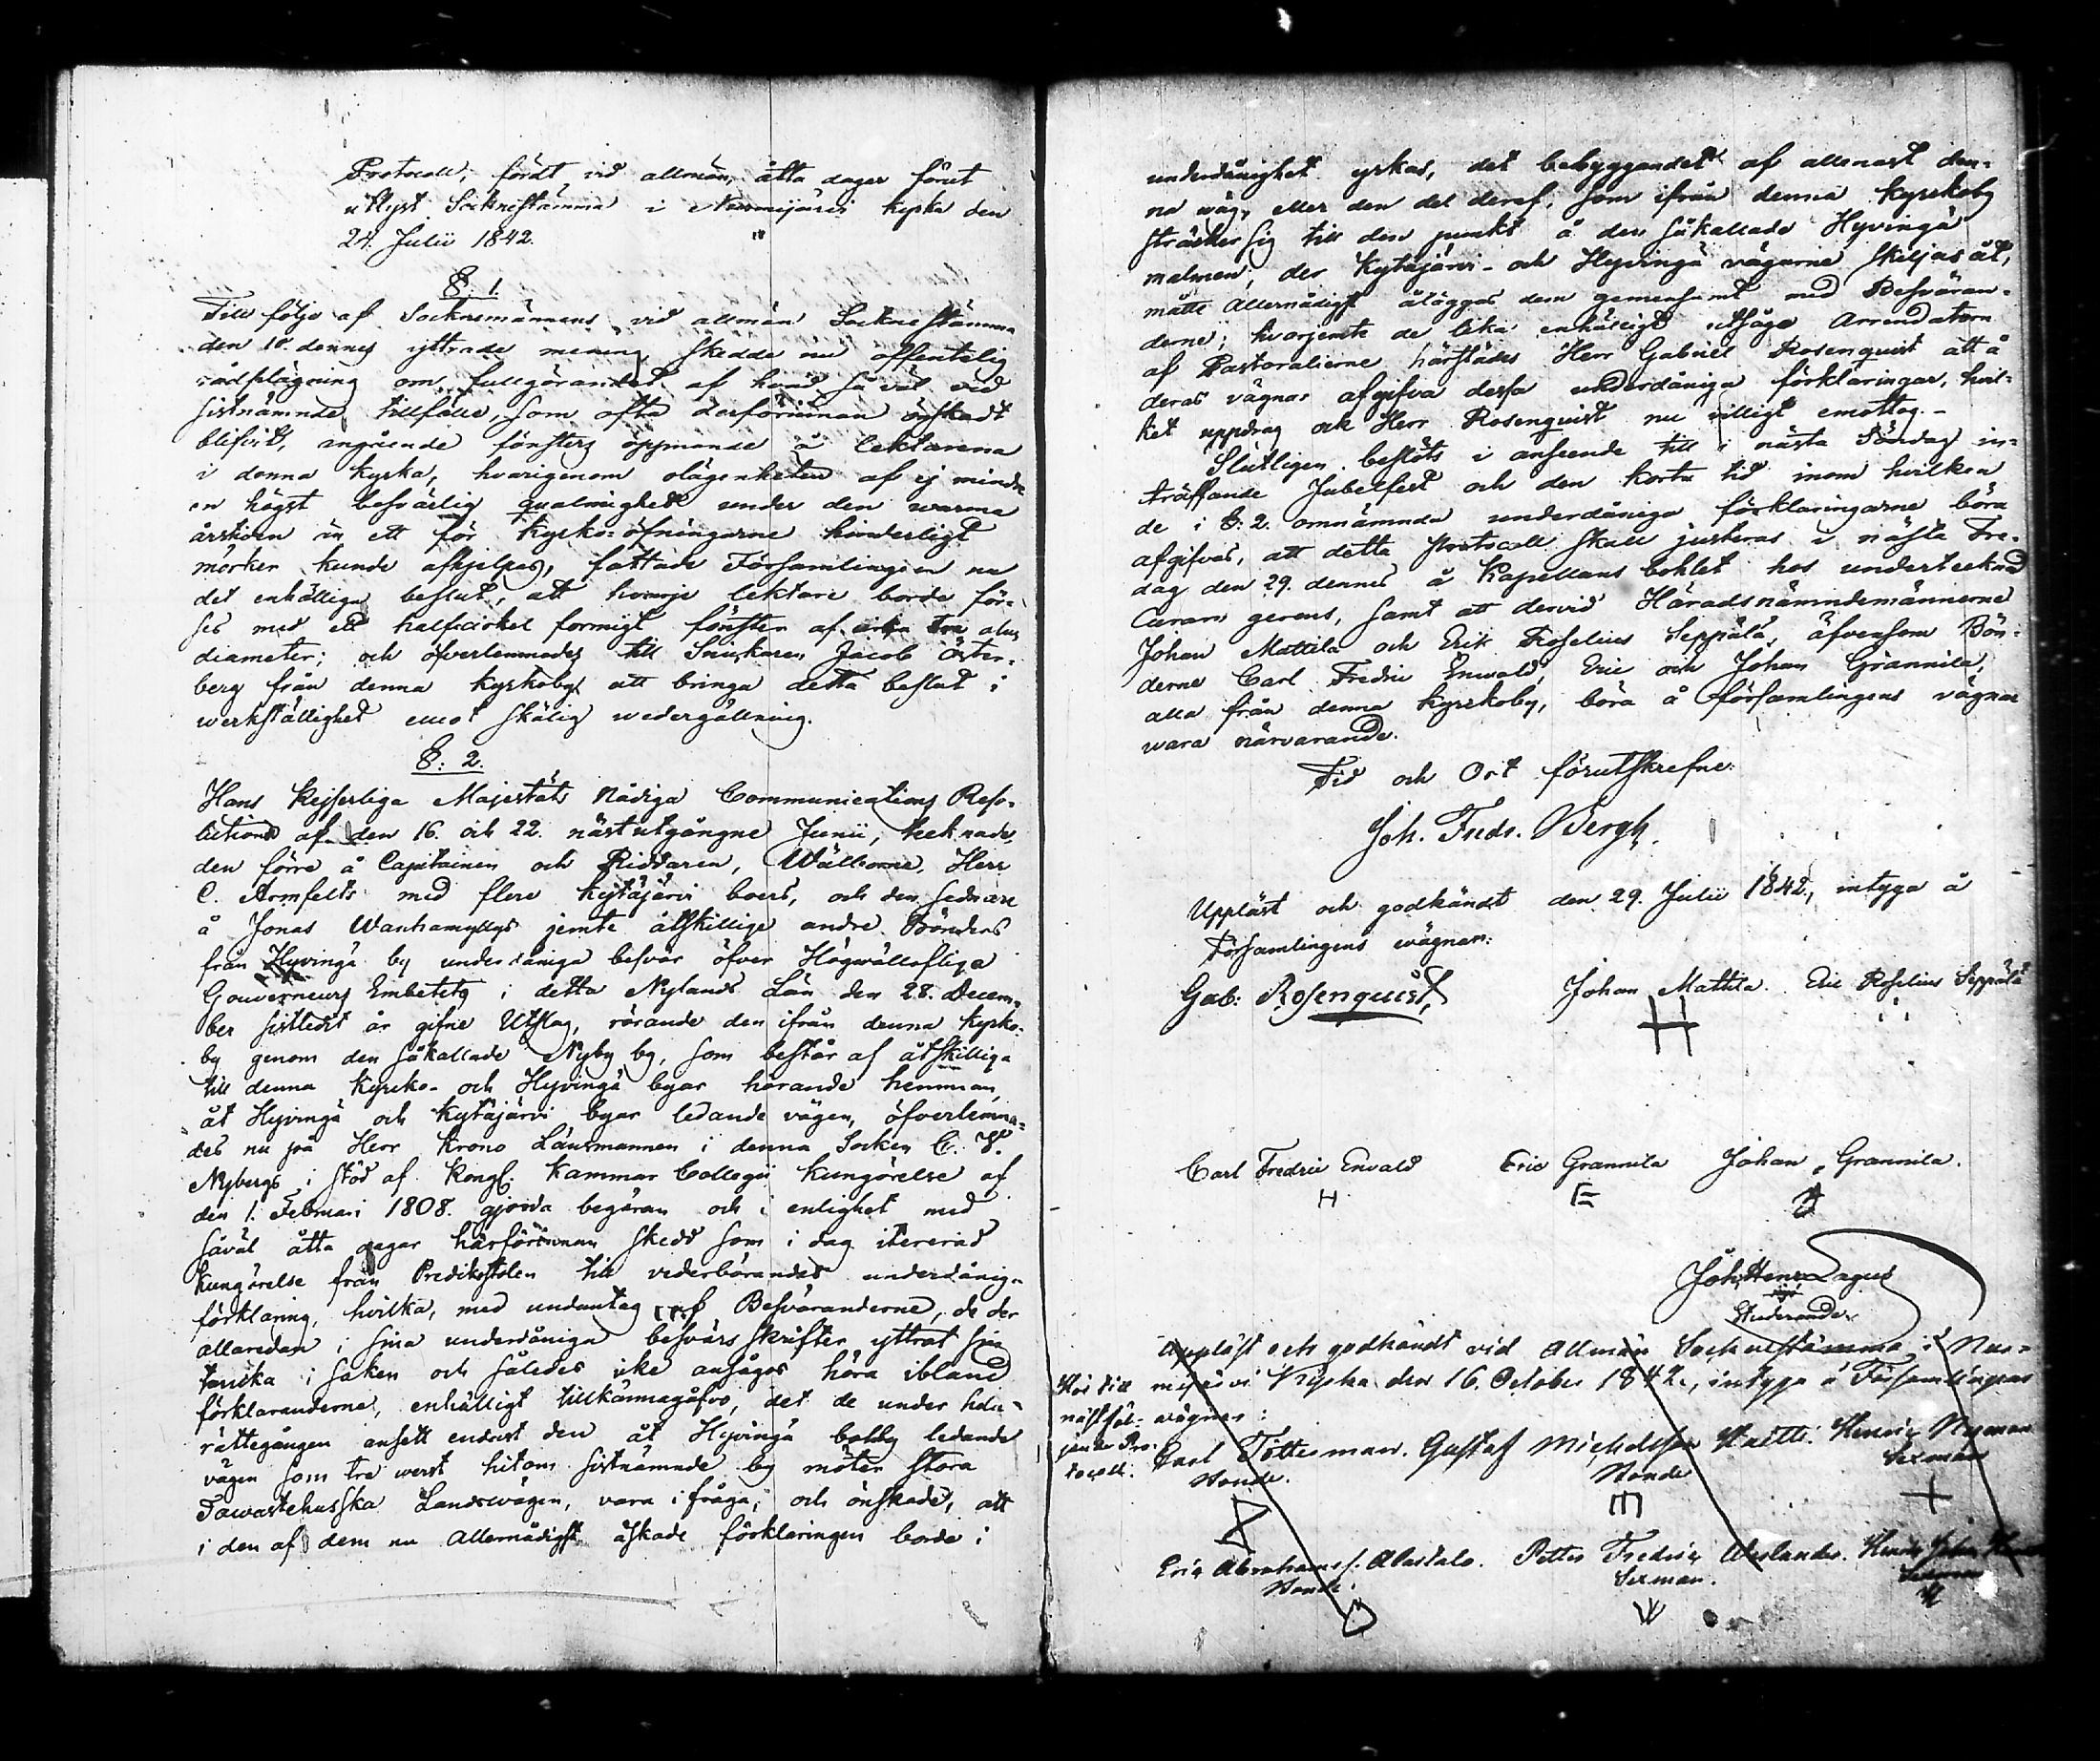 Protocoll, fördt vid allmän, åtta dagar förut
utlyst Socknestämma i Nurmijärvi kyrka den
24. Julii 1842.
§. 1.
Till följe af Socknemännens vid allmän Sockne stämma
den 10. dennes yttrade mening skedde nu offentelig
rådplägning om fullgörandet af hvad så väl vid
sistnämnde tillfälle, som ofta derförinnan önskadt
blifvit, angående fönsters öppnande å lektarena
i denna kyrka, hvarigenom olägenheten af ej mindre
en högst besvärlig qvalmighet under den warma
årstiden än ett för kyrko-öfningarne hinderligt
mörker kunde afhjelpas, fattade Församlingen nu
det enhälliga beslut, att hvarje lektare borde för-
ses med ett halfcirkel formigt fönster af tre alns
diameter; och öfverlemnades till Snickaren Jacob Öster-
berg från denna kyrkoby att bringa detta beslut i
werkställighet emot skälig wedergällning.
§: 2.
Hans Kejserliga Majestäts Nådiga Communications Reso-
lutioner af den 16. och 22. nästutgångne Junii, tecknade
den förre å Capitainen och Riddaren, Wälborne, Herr
C. Armfelts med flere Kytäjärvi boers, och den sednare
å Jonas Wanhamyllys jemte åtskillige andre Bönders
från Hyvingä by underdåniga besvär öfver Högwälloflige
Gouverneurs Embetets i detta Nylands Län den 28. Decem-
ber sistledit år gifne Utslag, rörande den ifrån denna kyrko-
by genom den såkallade Nyby by, som består af åtskilliga
till denna kyrko- och Hyvingä byar hörande hemman,
åt Hyvingä och Kytäjärvi byar ledande vägen, öfverlemna-
des nu på Herr Krono Länsmannen i denna Socken C. W.
Nybergs i stöd af Kongl. Kammar Collegii kungörelse af
den 1. Februari 1808. gjorda begäran och i enlighet med
såväl åtta dagar härförinnan skedd som i dag itererad
kungörelse från Predikstolen till vederbörandes underdåniga
förklaring, hvilka, med undantag af Besväranderne, de der
allaredan i sina underdåniga besvärs skrifter yttrat sin
tanka i saken och således icke ansågos höra ibland
förklaranderne, enhälligt tillkännagåfvo, det de under hela
rättegången ansett endast den åt Hyvingä by ledande
vägen som tre werst hitom sistnämnde by möter stora
Tawastehusska Landsvägen, vara i fråga; och önskade, att
i den af dem nu Allernådigst äskade förklaringen borde i
underdånighet yrkas, det bebyggandet af allenast den-
na väg, eller den del deraf, som ifrån denna kyrkoby
sträcker sig till den punkt å den såkallade Hyvingä
malmen, der Kytäjärvi- och Hyvingä vägarne skiljas åt,
måtte Allernådigst åläggas dem gemensamt med Besväran-
derne; hvarjemte de lika enhälligt utsågo Arrendatorn
af Pastoralierne härstädes Herr Gabriel Rosenquist att å
deras vägnar afgifva dessa underdåniga förklaringar, hvil-
ket uppdrag ock Herr Rosenquist nu villigt emottog.-
Slutligen beslöts i anseende till i nästa Söndag in-
träffande Jubelfest och den korta tid inom hvilken
de i §: 2. omnämnda underdåniga förklaringarne böra
afgifvas, att detta Protocoll skall justeras i nästa Fre-
dag den 29. dennes å Kapellans bohlet hos undertecknad
Curam gerens, samt att dervid Häradsnämndemännerne
Johan Mattila och Erik Roselius Seppälä, äfvensom Bön-
derne Carl Fredric Enwald, Eric och Johan Grannila,
alla från denna kyrkoby, böra å församlingens vägnar
wara närvarande.
Tid och Ort förutskrefne.
Joh. Fredr. Bergh.
Uppläst och godkändt den 29. Julii 1842, intyga å
Församlingens wägnar:
Gab: Rosenquist, Johan Mattila. Eric Roselius Seppälä
Carl Fredric Envald Eric Grannila Johan Grannila.
Joh. Henr. Lagus
Studerande.
Uppläst och godkändt vid Allmän Sockne stämma i Nur-
mijärvi Kyrka den 16. October 1842, intyga å Församlingens
wägnar:
Hör till
nästföl-
jande Pro-
tocoll.
Carl Totterman. Gustaf Michelsson Knitti. Henric Nyman
Bonde. Bonde Sexman
Eric Abrahamss. Alastalo. Petter Fredric Weslander. Henric Johan
Bonde. Sexman. Sexman